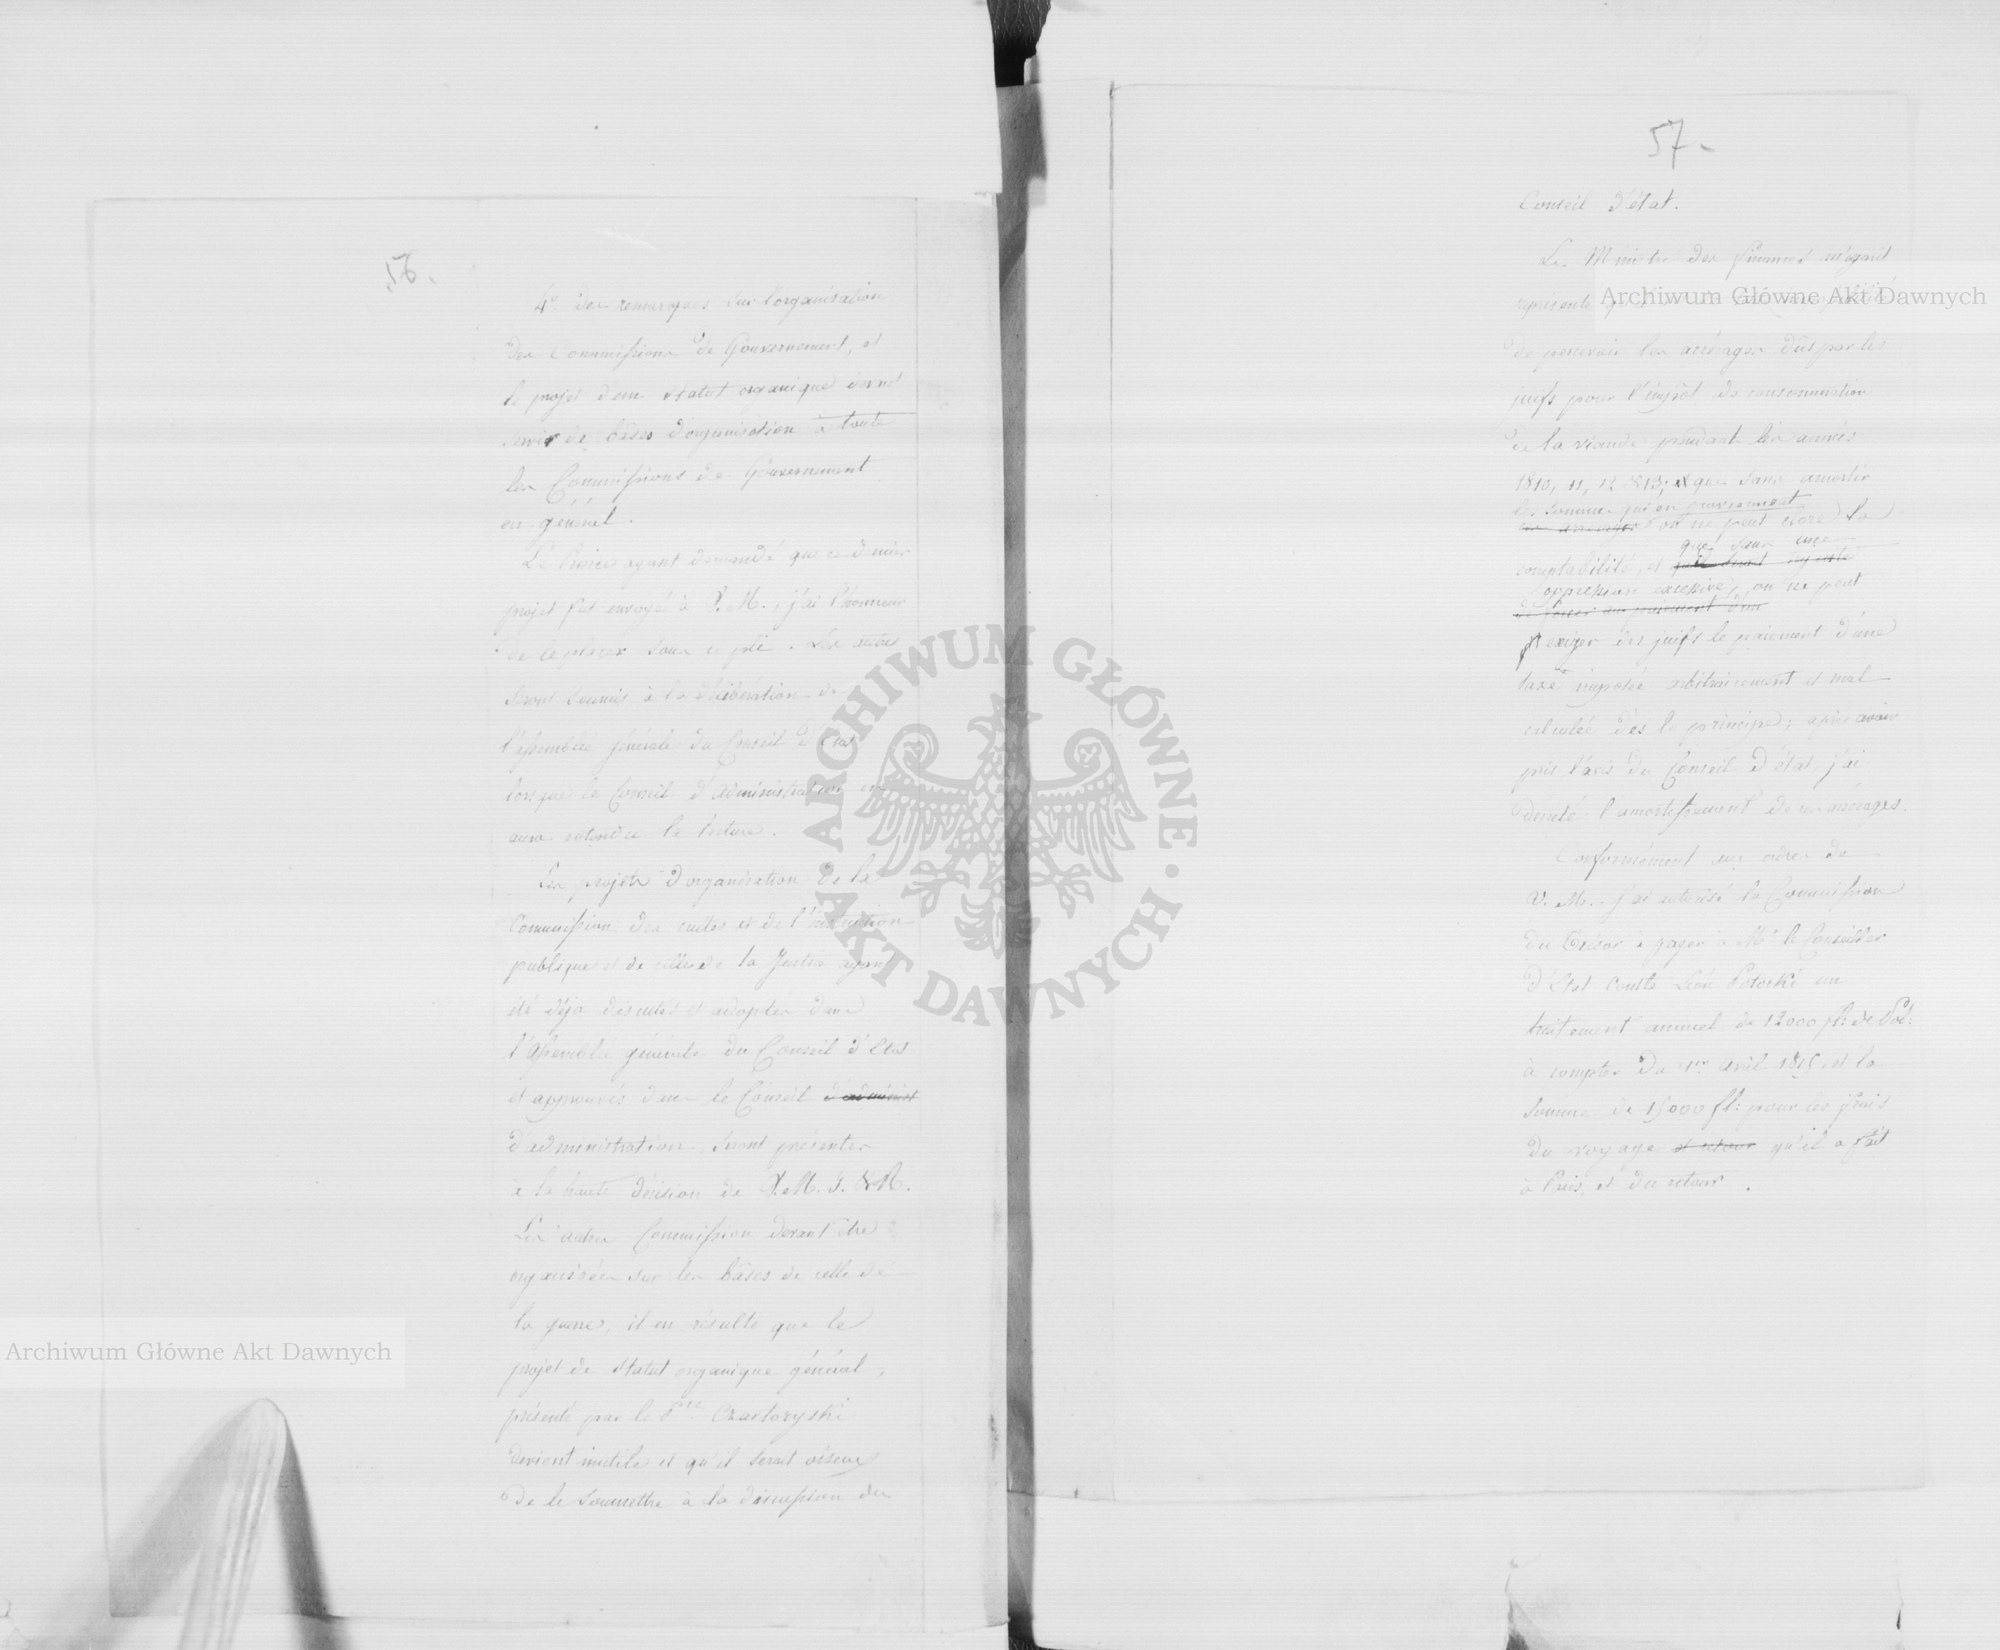 56.
4° des remarques sur l'organisation
des Commissions de Gouvernement, et
le projet d'un statut organique devant
servir de bases d'organisation à toutes
les Commissions de Gouvernement
en général.
Le Prince ayant demandé que ce dernier
projet fut envoyé à V. M., j'ai l'honneur
de le placer sous ce pli. Les autres
seront soumis à la délibération de
l'assemblée générale du Conseil d'Etat
lorsque le Conseil d'administration en
aura entendu la lecture.
Les projets d'organisation de la
Commission des cultes et de l'instruction
publique et de celle de la Justice ayant
été déja discutés et adoptés dans
l'Assemblée générale du Conseil d'Etat
et approuvés dans le Conseil d'administ
d'administration seront présentés
à la haute décision de V. M. I. & R.
Les autres Commission devant être
organisées sur les bases de celle de
la guerre, il en résulte que le
projet de statut organique général,
présenté par le Pce Czartoryski
devient inutile et qu'il serait oiseux
de le soumettre à la discussion du
57.
Conseil d'état.
Le Ministre des finances m'ayant
représenté
de percevoir les arrérages dûs par les
juifs pour l'impôt de consommation
de la viande pendant les années
1810, 11, 12 & 13; & que sans amortir
les sommes qui en proviennent
ces arrérages on ne peut clore la
que sans une
comptabilité, et
oppression excessive, on ne peut
exiger des juifs le paiement d'une
taxe imposée arbitrairement et mal
calculée dès le principe; après avoir
pris l'avis du Conseil d'état, j'ai
décrété l'amortissement de ces arrérages.
Conformément aux ordres de
V. M. j'ai autorisé la Commission
du Trésor à payer à Mr le Conseiller
d'Etat Comte Léon Potocki un
traitement annuel de 12000 fl: de Pol:
à compter du 1er avril 1815, et la
somme de 15000 fl: pour les frais
du voyage et retour qu'il a fait
à Paris, et du retour.
Archiwum Główne Akt Dawnych
Archiwum Główne Akt Dawnych
ARCHIWUM GŁÓWNE · AKT DAWNYCH ·